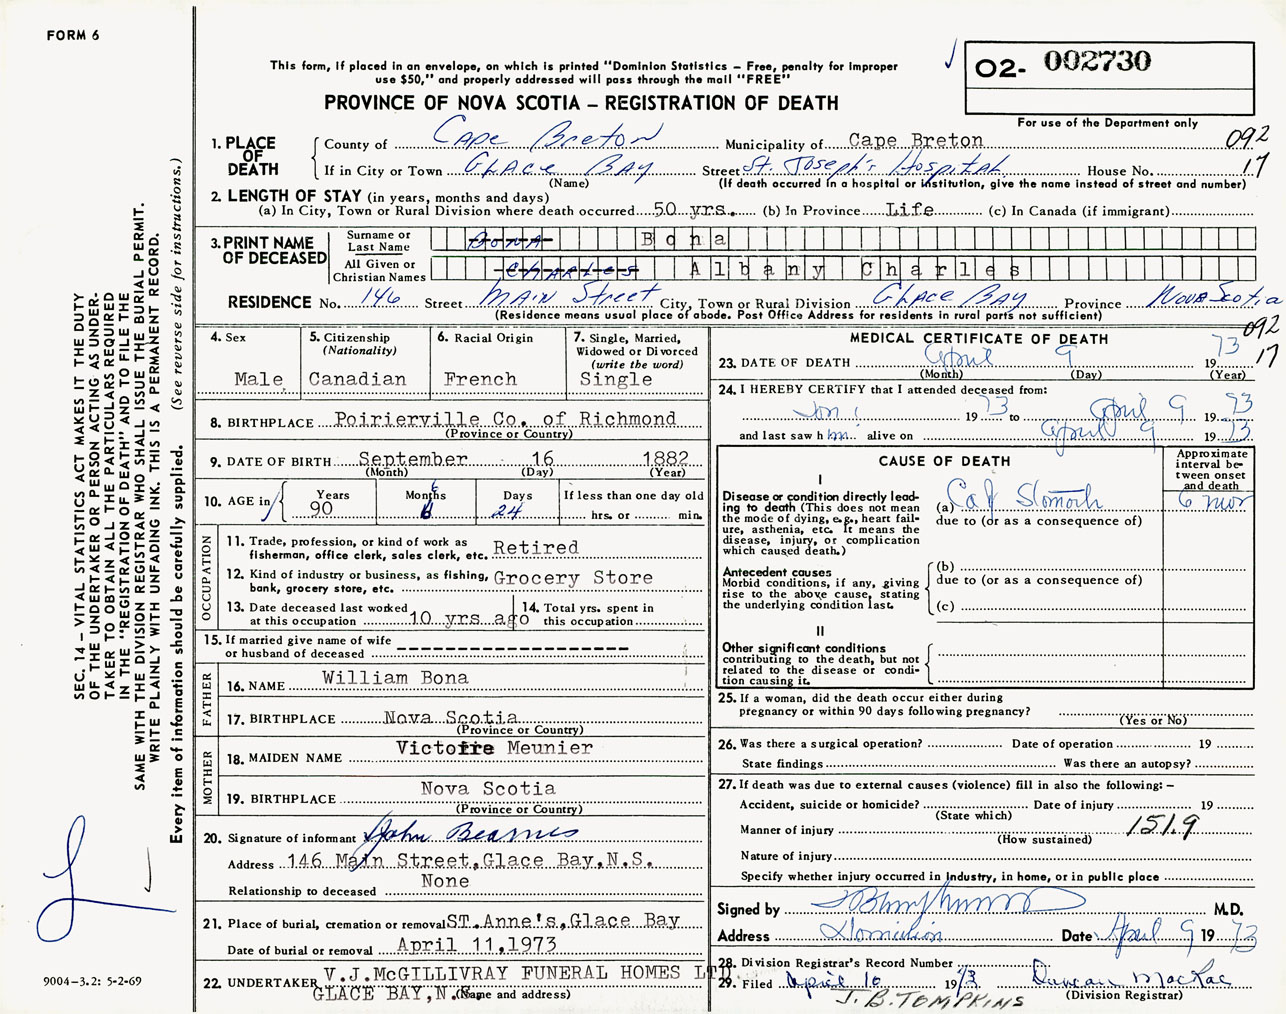 FORM 6
This form, if placed in an envelope, on which is printed "Dominion Statistics – Free, penalty for improper
use $50," and properly addressed will pass through the mail "FREE"
O2- 002730
For use of the Department only
PROVINCE OF NOVA SCOTIA – REGISTRATION OF DEATH
1. PLACE OF DEATH
County of Cape Breton Municipality of Cape Breton 092
If in City or Town Glace Bay Street St. Joseph's Hospital House No. 17
(Name) (If death occurred in a hospital or institution, give the name instead of street and number)
2. LENGTH OF STAY (in years, months and days)
(a) In City, Town or Rural Division where death occurred 50 yrs. (b) In Province Life (c) In Canada (if immigrant)
3. PRINT NAME OF DECEASED
Surname or Last Name Bona Bona
All Given or Christian Names Charles Albany Charles
RESIDENCE No. 146 Street Main Street City, Town or Rural Division Glace Bay Province Nova Scotia
(Residence means usual place of abode. Post Office Address for residents in rural parts not sufficient)
092
17
4. Sex
Male
5. Citizenship
(Nationality)
Canadian
6. Racial Origin
French
7. Single, Married,
Widowed or Divorced
(write the word)
Single
8. BIRTHPLACE Poirierville Co. of Richmond
(Province or Country)
9. DATE OF BIRTH September 16 1882
(Month) (Day) (Year)
10. AGE in
Years 90
Months 6
Days 24
If less than one day old
hrs. or min.
OCCUPATION
11. Trade, profession, or kind of work as
fisherman, office clerk, sales clerk, etc. Retired
12. Kind of industry or business, as fishing,
bank, grocery store, etc. Grocery Store
13. Date deceased last worked
at this occupation 10 yrs ago
14. Total yrs. spent in
this occupation
15. If married give name of wife
or husband of deceased ------------------
FATHER
16. NAME William Bona
17. BIRTHPLACE Nova Scotia
(Province or Country)
MOTHER
18. MAIDEN NAME Victoire Meunier
19. BIRTHPLACE Nova Scotia
(Province or Country)
20. Signature of informant John Bearnes
Address 146 Main Street, Glace Bay, N.S.
Relationship to deceased None
21. Place of burial, cremation or removal ST. Anne's, Glace Bay
Date of burial or removal April 11, 1973
22. UNDERTAKER V.J.McGILLIVRAY FUNERAL HOMES LTD.
GLACE BAY, N.S.
(Name and address)
MEDICAL CERTIFICATE OF DEATH
23. DATE OF DEATH April 9 1973
(Month) (Day) (Year)
24. I HEREBY CERTIFY that I attended deceased from:
Jan 1 1973 to April 9 1973
and last saw him alive on April 9 1973
CAUSE OF DEATH
Approximate
interval be-
tween onset
and death
I
Disease or condition directly lead-
ing to death (This does not mean
the mode of dying, e.g., heart fail-
ure, asthenia, etc. It means the
disease, injury, or complication
which caused death.)
(a) Ca of Stomach 6 mos
due to (or as a consequence of)
Antecedent causes
Morbid conditions, if any, giving
rise to the above cause, stating
the underlying condition last.
(b)
due to (or as a consequence of)
(c)
II
Other significant conditions
contributing to the death, but not
related to the disease or condi-
tion causing it.
25. If a woman, did the death occur either during
pregnancy or within 90 days following pregnancy?
(Yes or No)
26. Was there a surgical operation? Date of operation 19
State findings Was there an autopsy?
27. If death was due to external causes (violence) fill in also the following: –
Accident, suicide or homicide? Date of injury 19
(State which)
Manner of injury 151.9
(How sustained)
Nature of injury
Specify whether injury occurred in industry, in home, or in public place
Signed by M.D.
Address Dominion Date April 9 1973
28. Division Registrar's Record Number
29. Filed April 10 1973 Duncan MacRae
(Division Registrar)
J. B. TOMPKINS
SEC. 14 – VITAL STATISTICS ACT MAKES IT THE DUTY
OF THE UNDERTAKER OR PERSON ACTING AS UNDER-
TAKER TO OBTAIN ALL THE PARTICULARS REQUIRED
IN THE "REGISTRATION OF DEATH" AND TO FILE THE
SAME WITH THE DIVISION REGISTRAR WHO SHALL ISSUE THE BURIAL PERMIT.
WRITE PLAINLY WITH UNFADING INK. THIS IS A PERMANENT RECORD.
Every item of information should be carefully supplied. (See reverse side for instructions.)
9004-3.2: 5-2-69